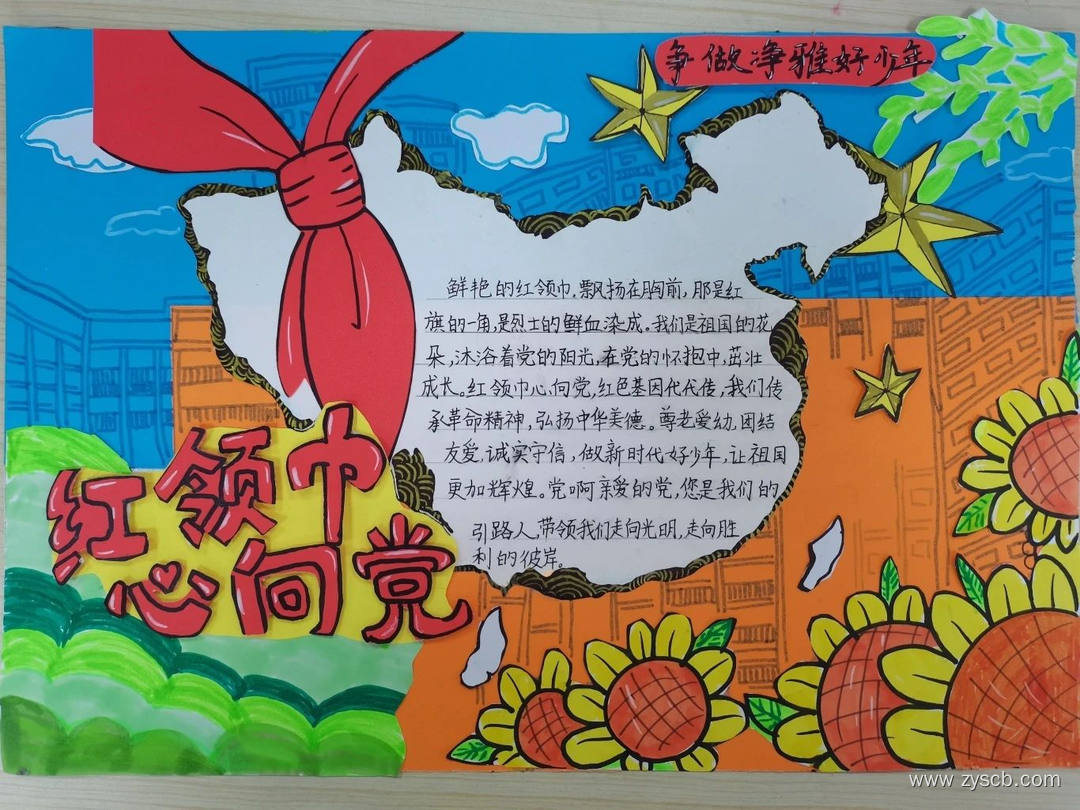 争做净雅好少年
鲜艳的红领巾.飘扬在胸前,那是红
旗的一角,是烈士的鲜血染成。我们是祖国的花
朵,沐浴着党的阳光,在党的怀抱中,茁壮
成长。红领巾心向党,红色基因代代传,我们传
承革命精神,弘扬中华美德。尊老爱幼,团结
友爱,诚实守信,做新时代好少年,让祖国
更加辉煌。党啊亲爱的党,您是我们的
引路人,带领我们走向光明,走向胜
利的彼岸。
红领巾
心向党
www.zyscb.com